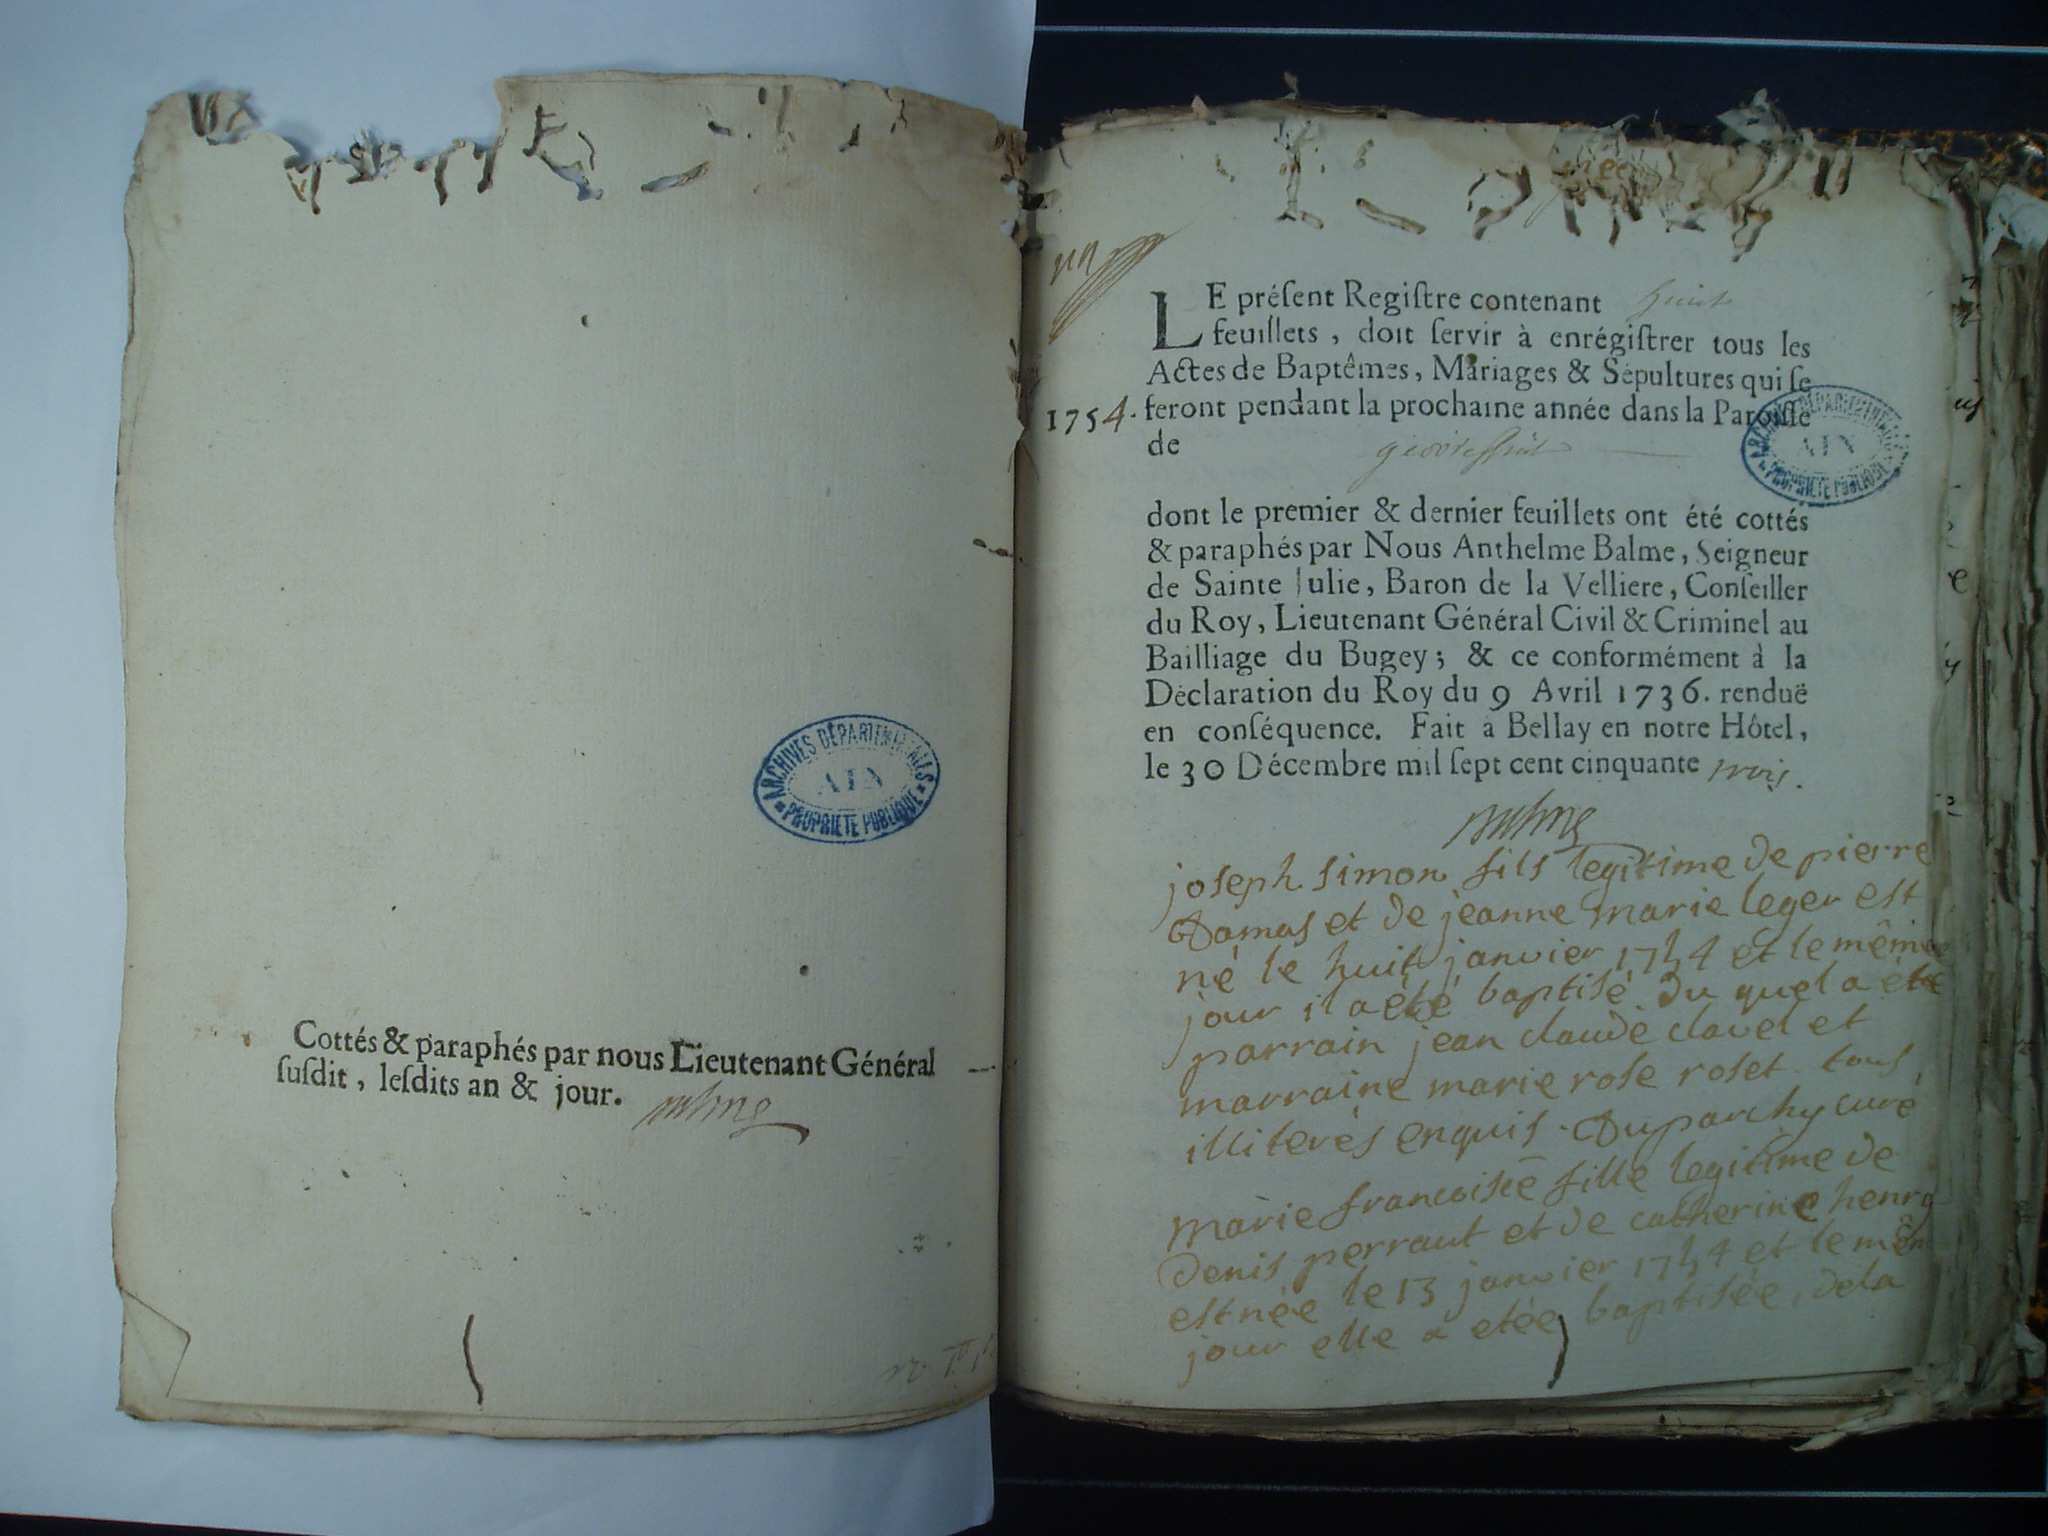 Cottés & paraphés par nous Lieutenant Général
susdit, lesdits an & jour.
ARCHIVES DÉPARTEMENTALES
AIN
PROPRIÉTÉ PUBLIQUE
un
LE présent Registre contenant huit
feuillets, doit servir à enrégistrer tous les
Actes de Baptêmes, Mariages & Sépultures qui se
1754. feront pendant la prochaine année dans la Paroisse
de
ARCHIVES DÉPARTEMENTALES
AIN
PROPRIÉTÉ PUBLIQUE
dont le premier & dernier feuillets ont été cottés
& paraphés par Nous Anthelme Balme, Seigneur
de Sainte Julie, Baron de la Velliere, Conseiller
du Roy, Lieutenant Général Civil & Criminel au
Bailliage du Bugey; & ce conformément à la
Déclaration du Roy du 9 Avril 1736. renduë
en conséquence. Fait à Bellay en notre Hôtel,
le 30 Décembre mil sept cent cinquante trois.
Balme
joseph simon fils legitime de pierre
Damas et de jeanne marie leger est
né le huit janvier 1754 et le même
jour il a été baptisé du quel a été
parrain jean claude clavel et
marraine marie rose roset tous
illiterés enquis. Duparchy curé
marie francoise fille legitime de
denis perraut et de catherine henry
est née le 13 janvier 1754 et le mêm
jour elle a etée baptisée, dela